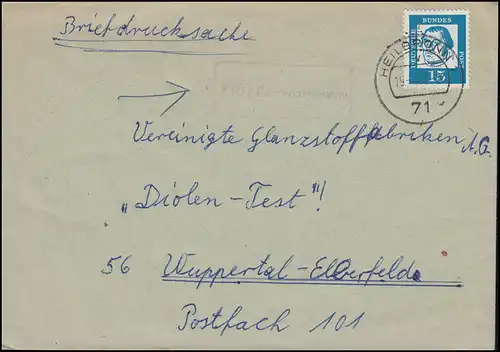 Briefdrucksache
DEUTSCHE
BUNDES
POST
15
HEILBRONN
71
Vereinigte Glanzstofffabriken A.G.
"Diolen-Test"!
56 Wuppertal-Elberfeld
Postfach 101